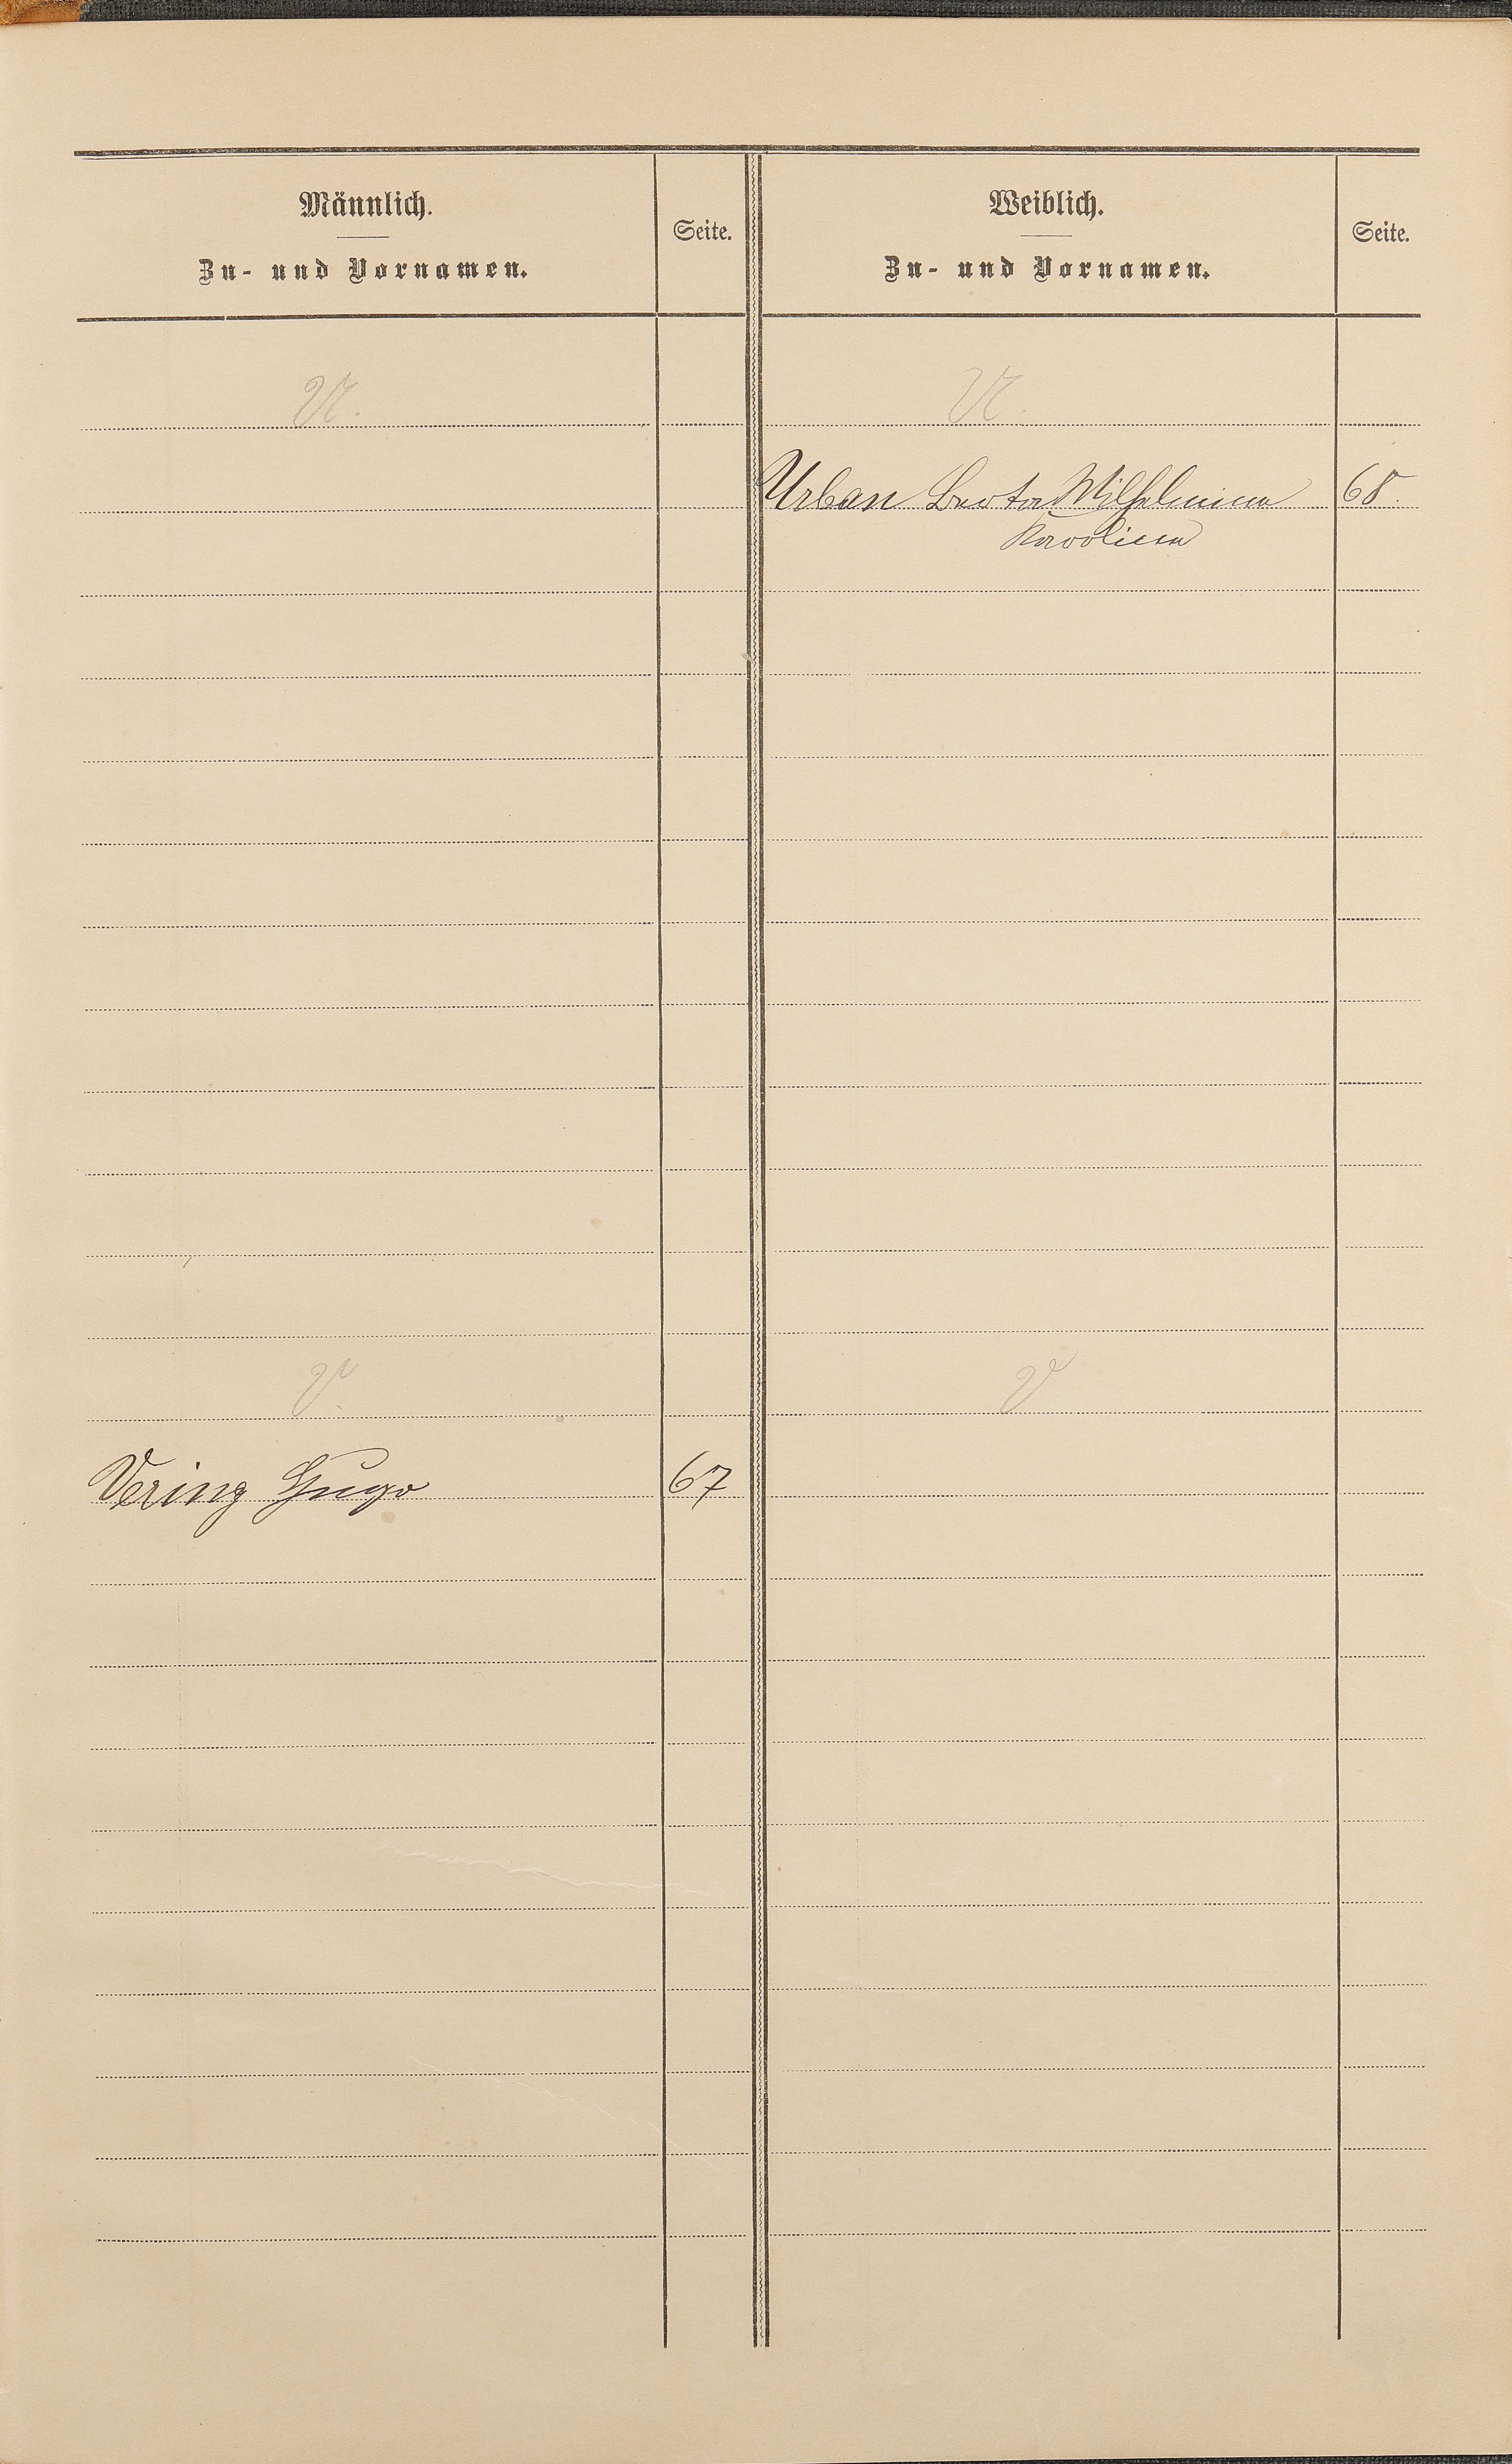 Männlich.
Zu- und Vornamen.
Seite.
Weiblich.
Zu- und Vornamen.
Seite.
U.
U.
Urban Berta Wilhelmina 68.
Karolina
V.
V
Vering Hugo 67